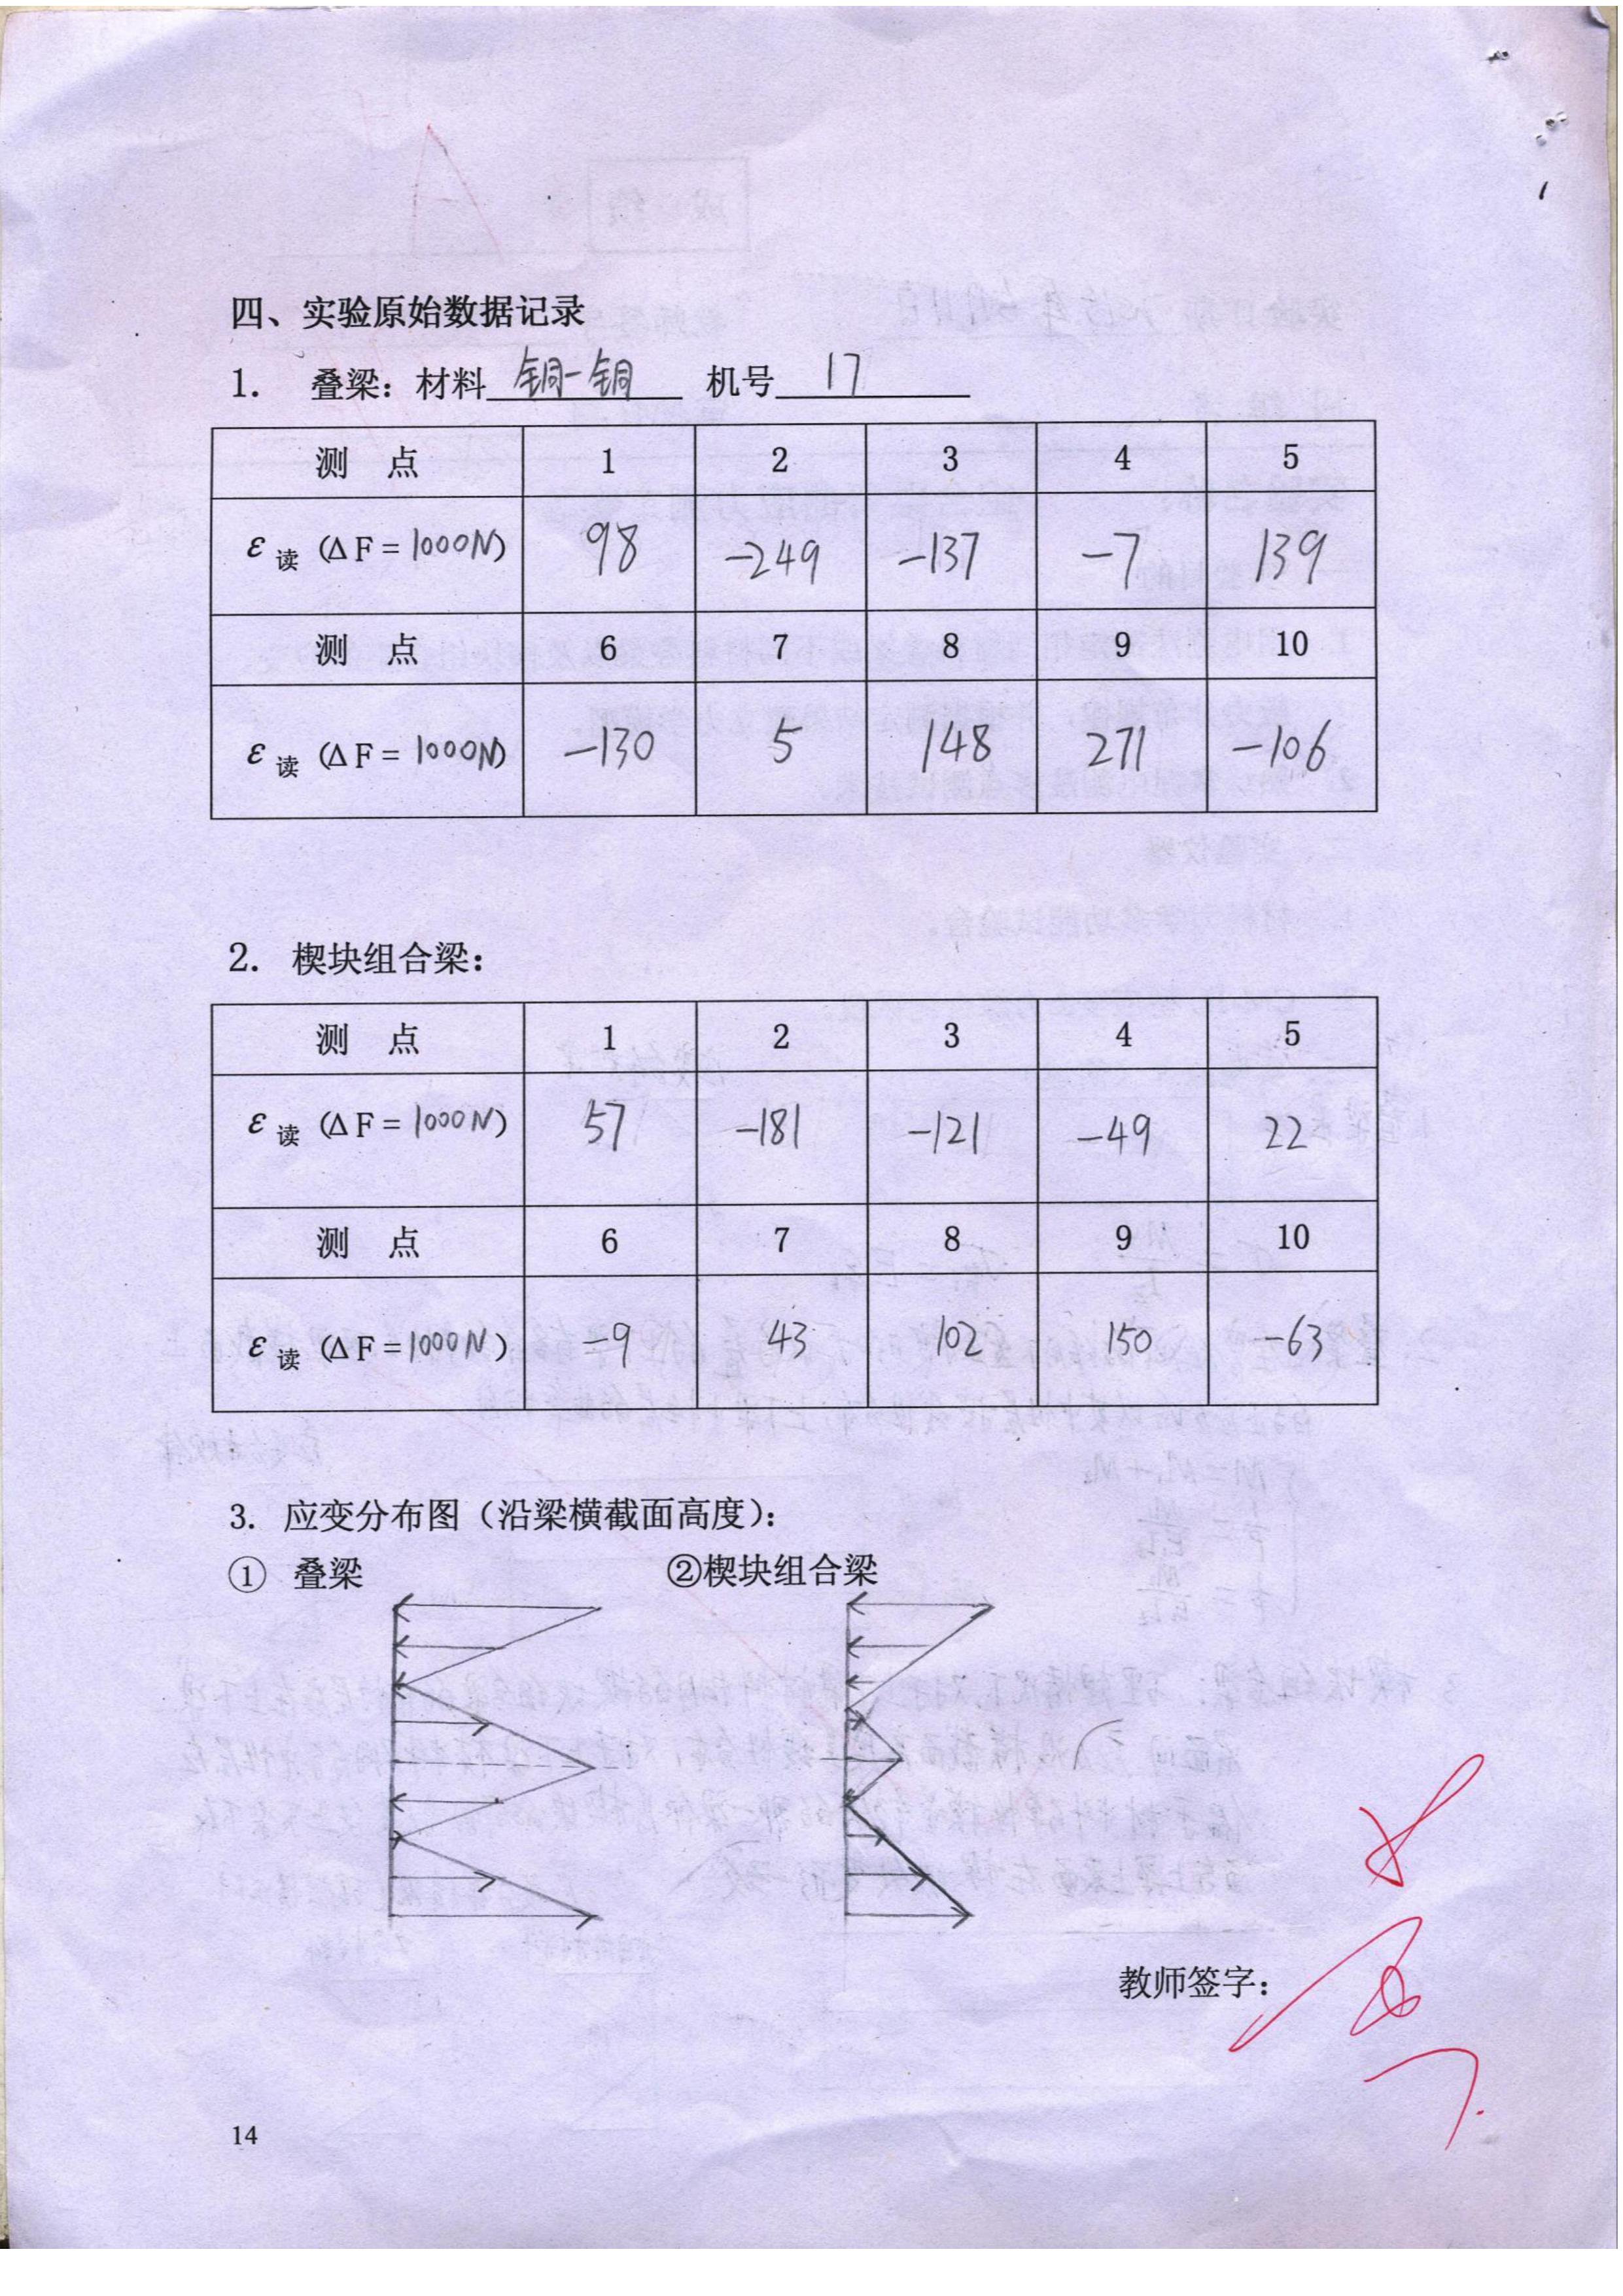 四、实验原始数据记录
1. 叠梁：材料 铜-铜 机号 17
测 点 1 2 3 4 5
ε读 (ΔF=1000N) 98 -249 -137 -7 139
测 点 6 7 8 9 10
ε读 (ΔF=1000N) -130 5 148 271 -106
2. 楔块组合梁：
测 点 1 2 3 4 5
ε读 (ΔF=1000N) 57 -181 -121 -49 22
测 点 6 7 8 9 10
ε读 (ΔF=1000N) -9 43 102 150 -63
3. 应变分布图（沿梁横截面高度）：
① 叠梁 ②楔块组合梁
教师签字：
14